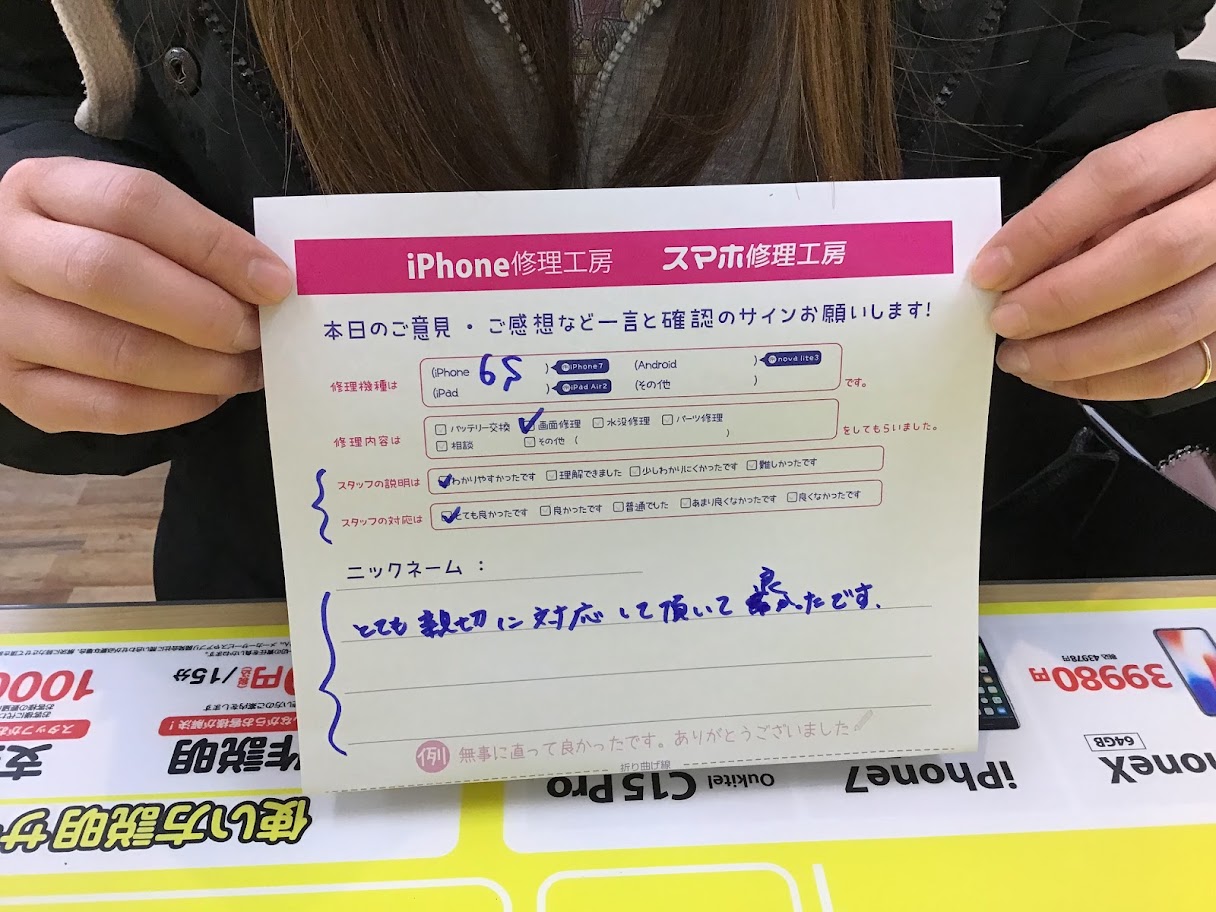 iPhone修理工房 スマホ修理工房
本日のご意見・ご感想など一言と確認のサインお願いします!
修理機種は (iPhone 6S ) 例iPhone7 (Android ) 例nova lite3
(iPad ) 例iPad Air2 (その他 ) です。
修理内容は バッテリー交換 画面修理 水没修理 パーツ修理
相談 その他 ( ) をしてもらいました。
スタッフの説明は わかりやすかったです 理解できました 少しわかりにくかったです 難しかったです
スタッフの対応は とても良かったです 良かったです 普通でした あまり良くなかったです 良くなかったです
ニックネーム :
とても親切に対応して頂いて良かったです.
例 無事に直って良かったです。ありがとうございました
折り曲げ線
使い方説明サ
作説明
ながらお客様が解決!
円(税抜)/15分
支
スタッフがお
1000
Oukitel C15 Pro
iPhone7
honeX
64GB
39980円
税込43978円